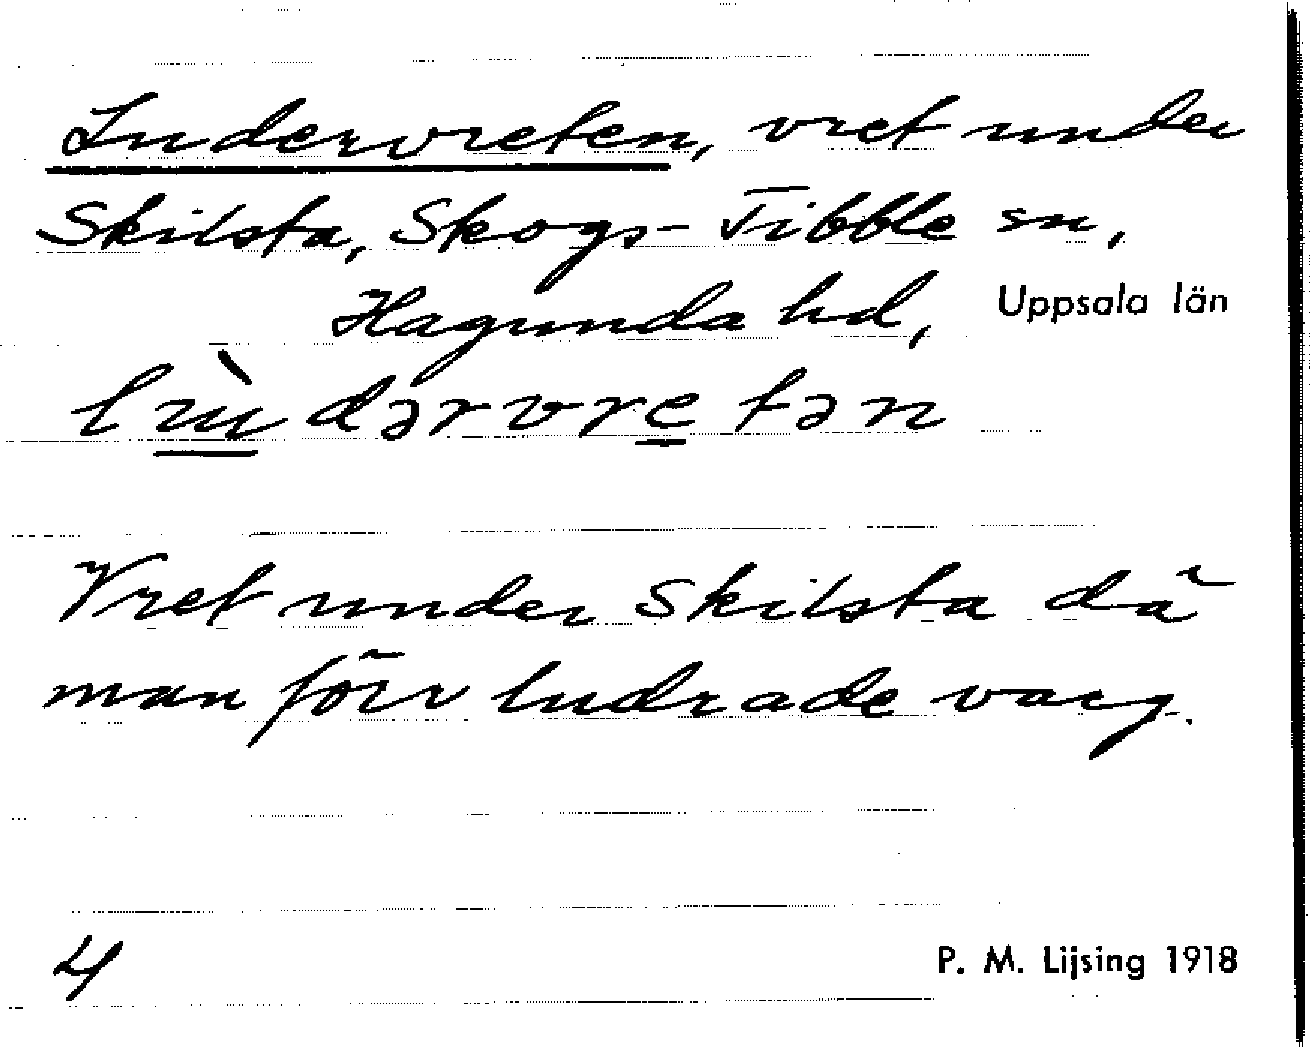 Ludervreten, vret under
Skilsta, Skogs-Tibble sn,
Hagunda hd, Uppsala län
lùdərvretən
Vret under Skilsta då
man förr ludrade varg.
4
P. M. Lijsing 1918